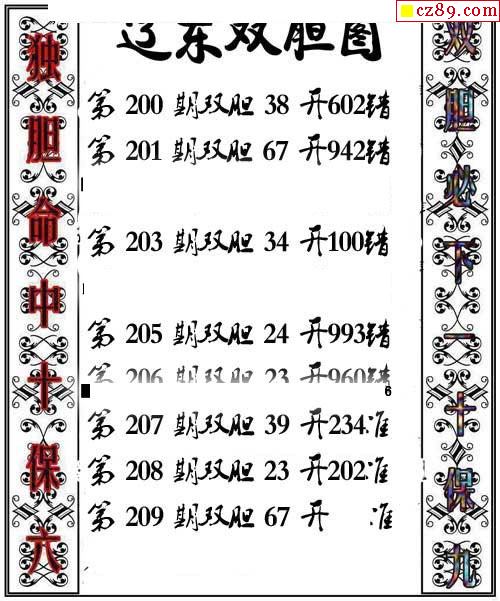 cz89.com
辽东双胆图
独胆命中十保六
第 200 期双胆 38 开602错
第 201 期双胆 67 开942错
第 203 期双胆 34 开100错
第 205 期双胆 24 开993错
第 206 期双胆 23 开960错
6
第 207 期双胆 39 开234准
第 208 期双胆 23 开202准
第 209 期双胆 67 开 准
双胆必下一十保九